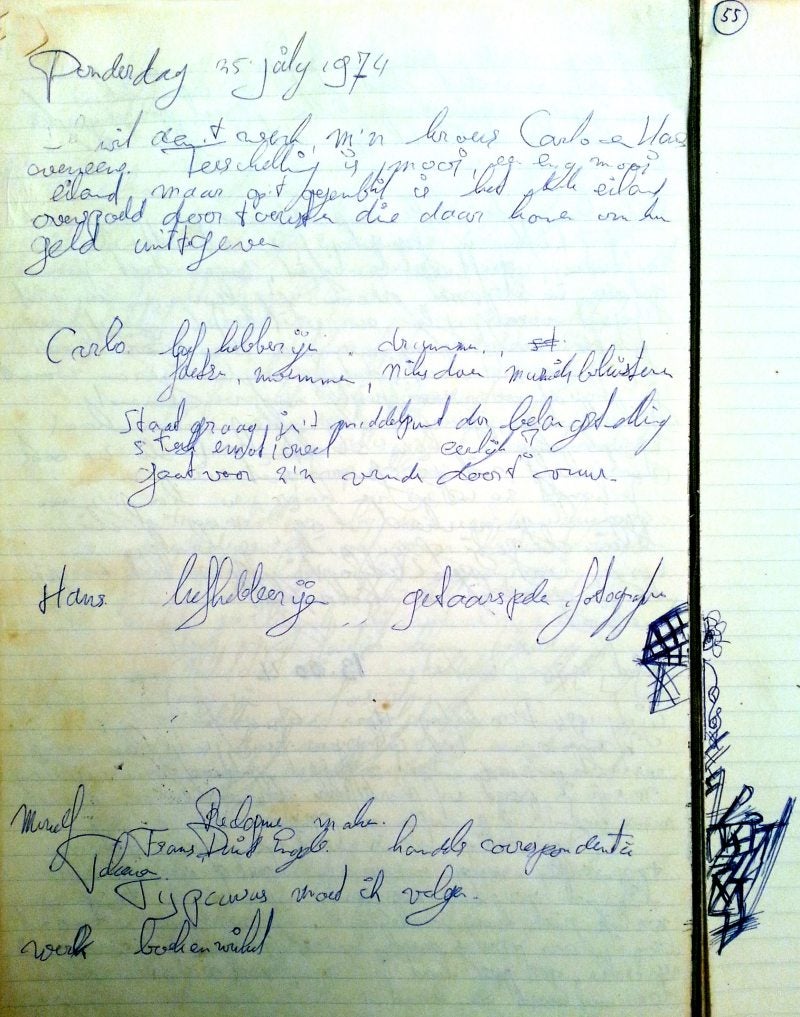 55
Donderdag 25 july 1974
wil werk, m'n broers Carlo en Hans
overeen. Terschelling is mooi, een erg mooi
eiland, maar is het eiland
overspoeld door toeristen die daar komen om hun
geld uittegeven
Carlo. liefhebberije. drummen,
, niksdoen muziek beluisteren
Staat graag in't middelpunt der belangstelling
emotioneel eerlijk
gaat voor z'n vrienden door't vuur.
Hans. liefhebberijen gitaarspelen, fotografie
Reclame maken.
Frans Duits Engels. handels correspondentie
Typecursus moet ik volgen.
werk boekenwinkel